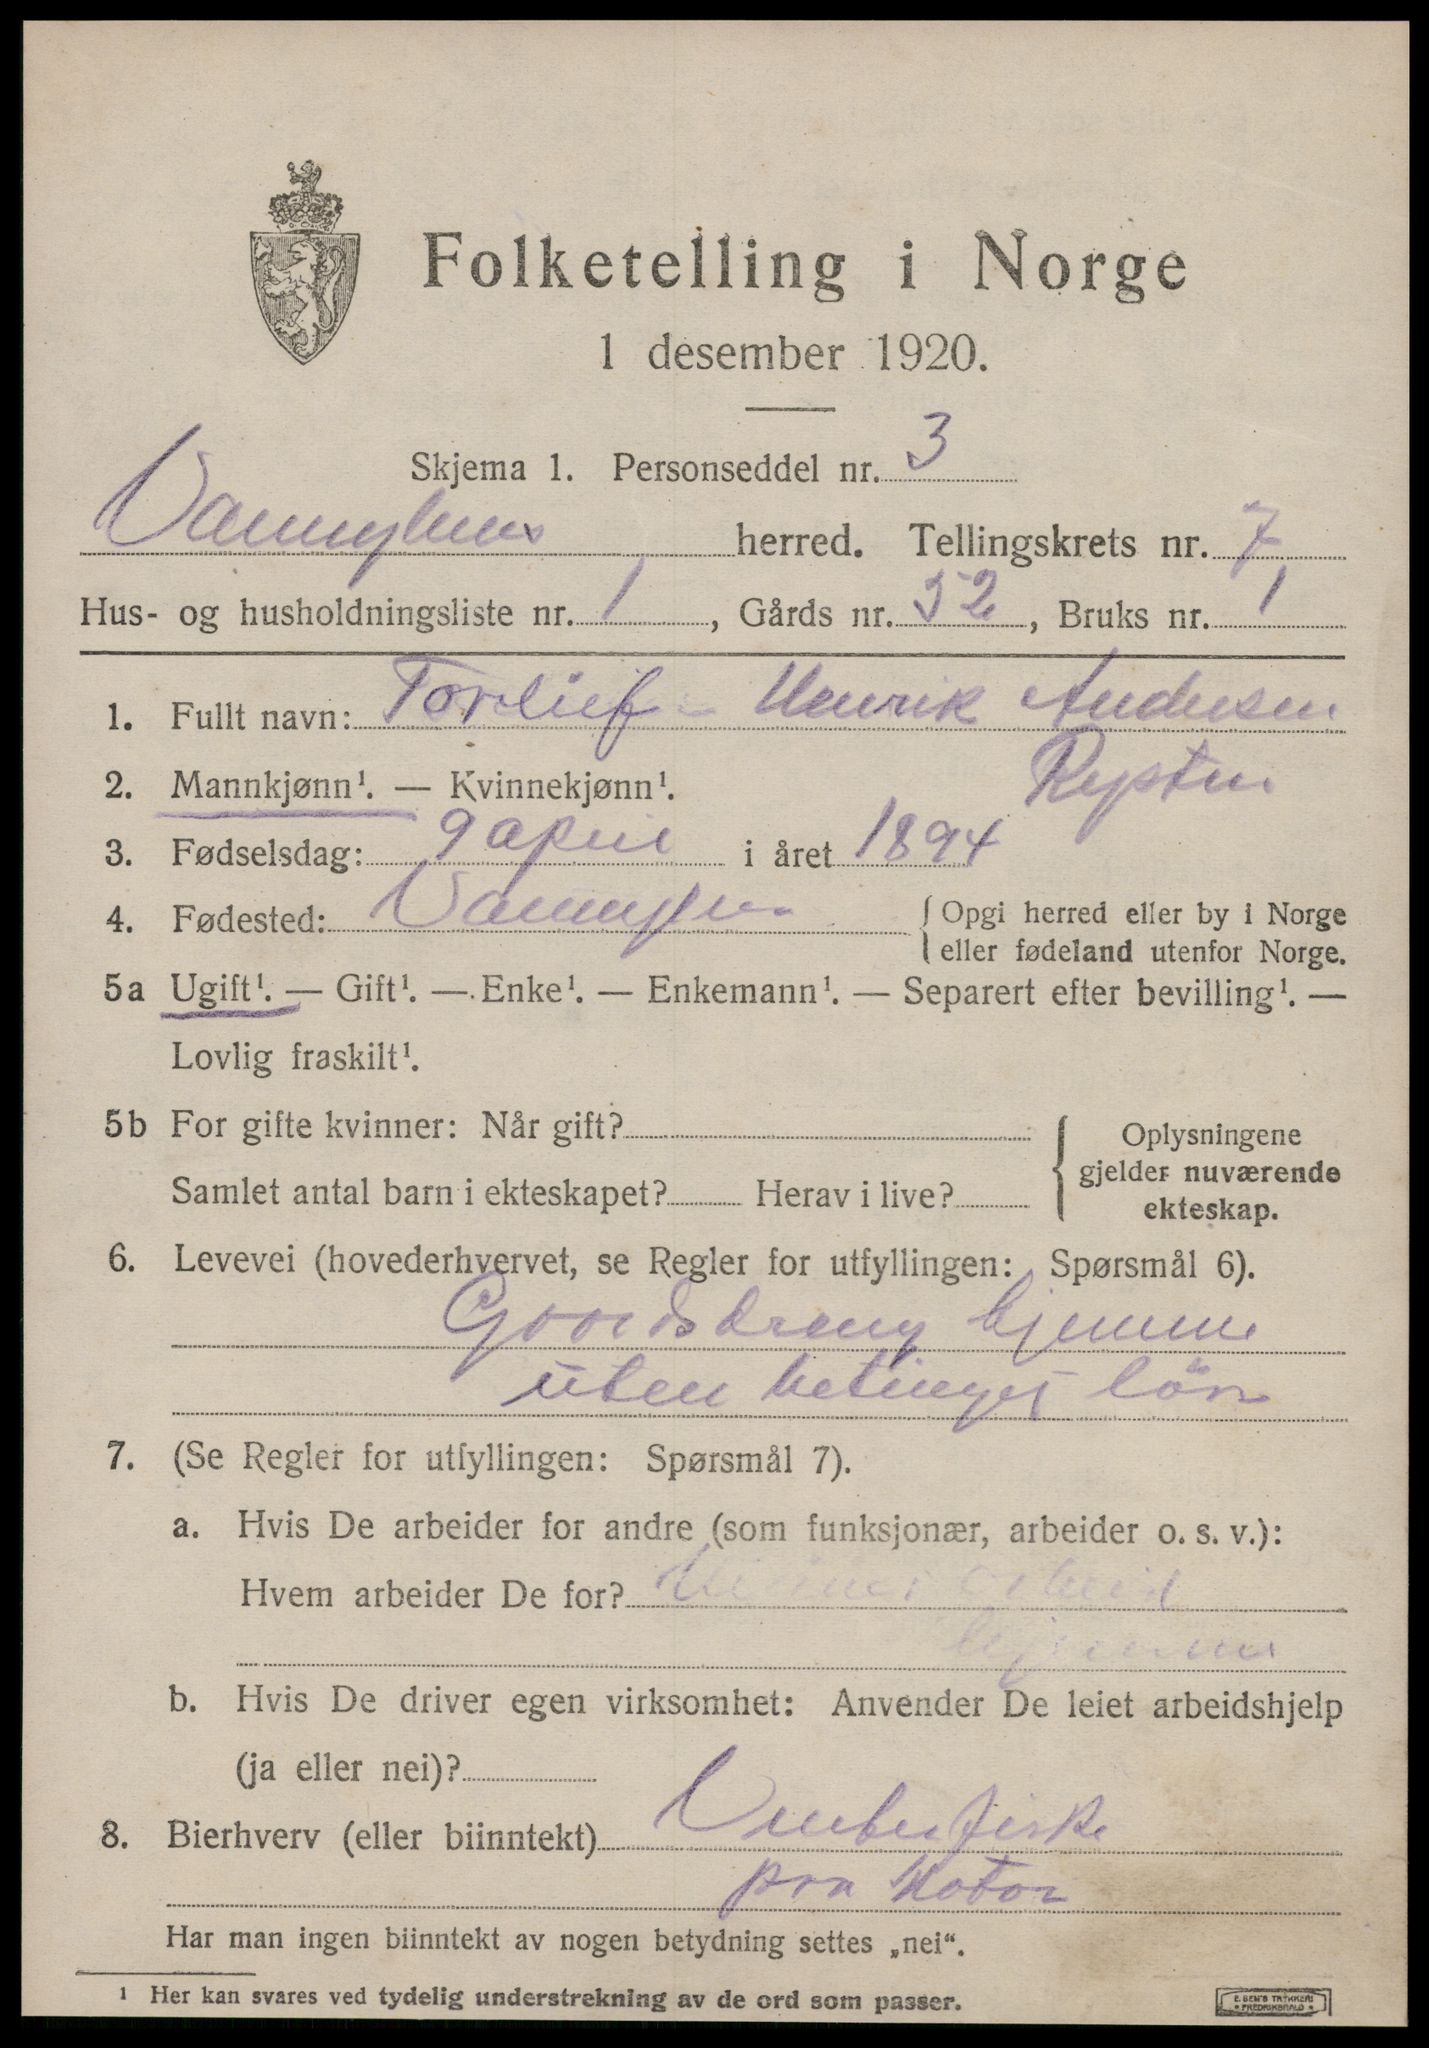 Folketelling i Norge
1 desember 1920.
Skjema 1. Personseddel nr. 3
Vannylven herred. Tellingskrets nr. 7
Hus- og husholdningsliste nr. 1, Gårds nr. 52, Bruks nr. 1
1. Fullt navn: Torleif Henrik Andersen
Rysten
2. Mannkjønn¹. — Kvinnekjønn¹.
3. Fødselsdag: 9 april i året 1894
4. Fødested: Vannylven { Opgi herred eller by i Norge
eller fødeland utenfor Norge.
5a Ugift¹. — Gift¹. — Enke¹. — Enkemann¹. — Separert efter bevilling¹. —
Lovlig fraskilt¹.
5b For gifte kvinner: Når gift?
Samlet antal barn i ekteskapet? Herav i live?
{ Oplysningene
gjelder nuværende
ekteskap.
6. Levevei (hovederhvervet, se Regler for utfyllingen: Spørsmål 6).
Goardsdreng hjemme
uten betinget løn
7. (Se Regler for utfyllingen: Spørsmål 7).
a. Hvis De arbeider for andre (som funksjonær, arbeider o. s. v.):
Hvem arbeider De for? arbeid
hjemme
b. Hvis De driver egen virksomhet: Anvender De leiet arbeidshjelp
(ja eller nei)?
8. Bierhverv (eller biinntekt) Vinterfiske
paa Motor
Har man ingen biinntekt av nogen betydning settes „nei“.
¹ Her kan svares ved tydelig understrekning av de ord som passer.
E. SEM'S TRYKKERI
FREDRIKSHALD